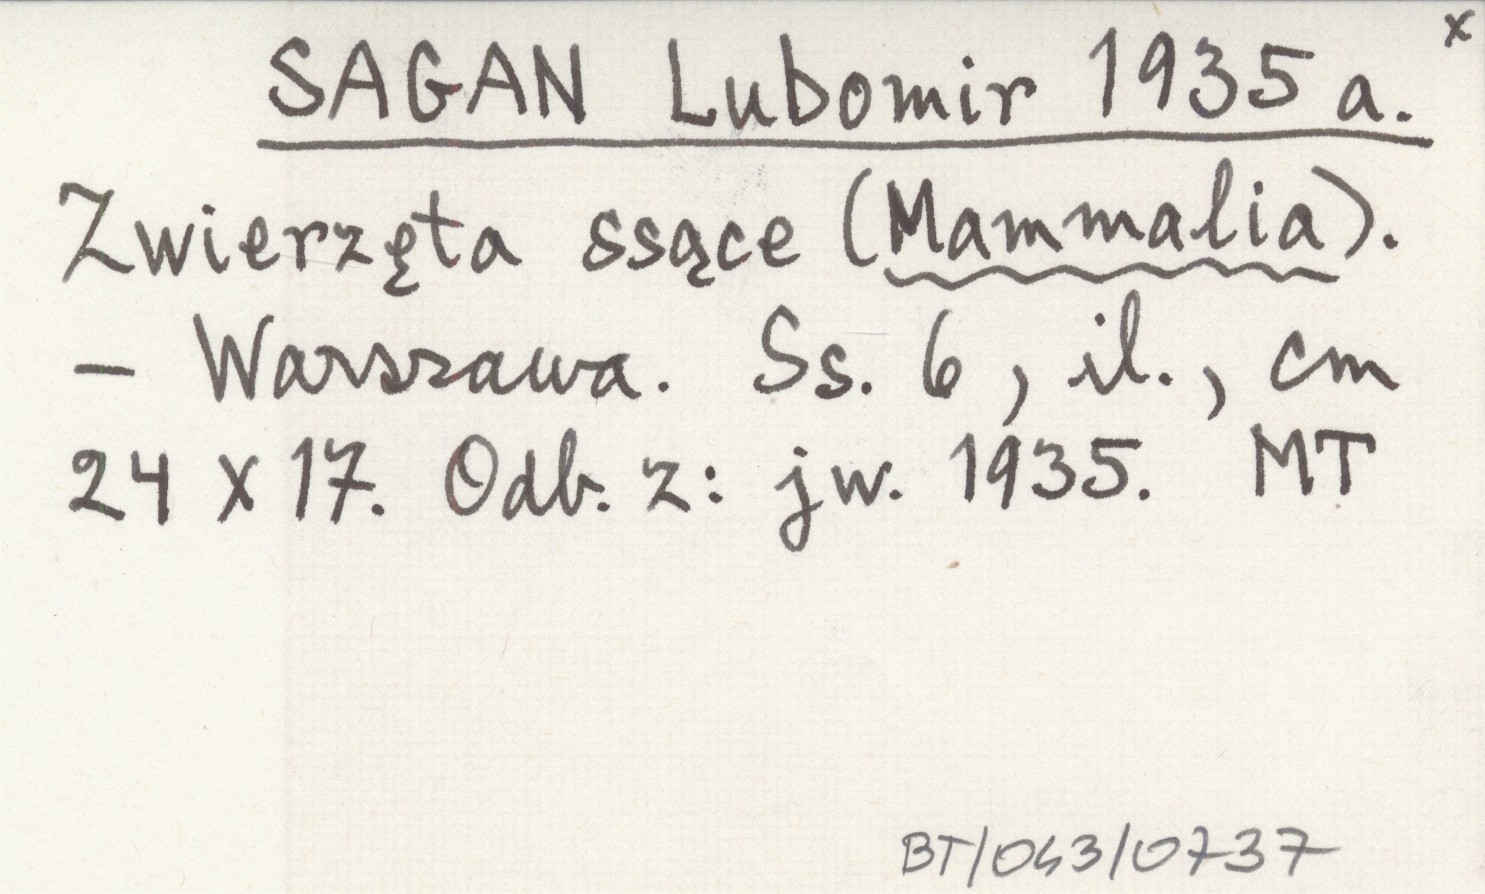 x
SAGAN Lubomir 1935 a.
Zwierzęta ssące (Mammalia).
– Warszawa. Ss. 6, il., cm
24 x 17. Odb. z: jw. 1935. MT
BT/043/0737